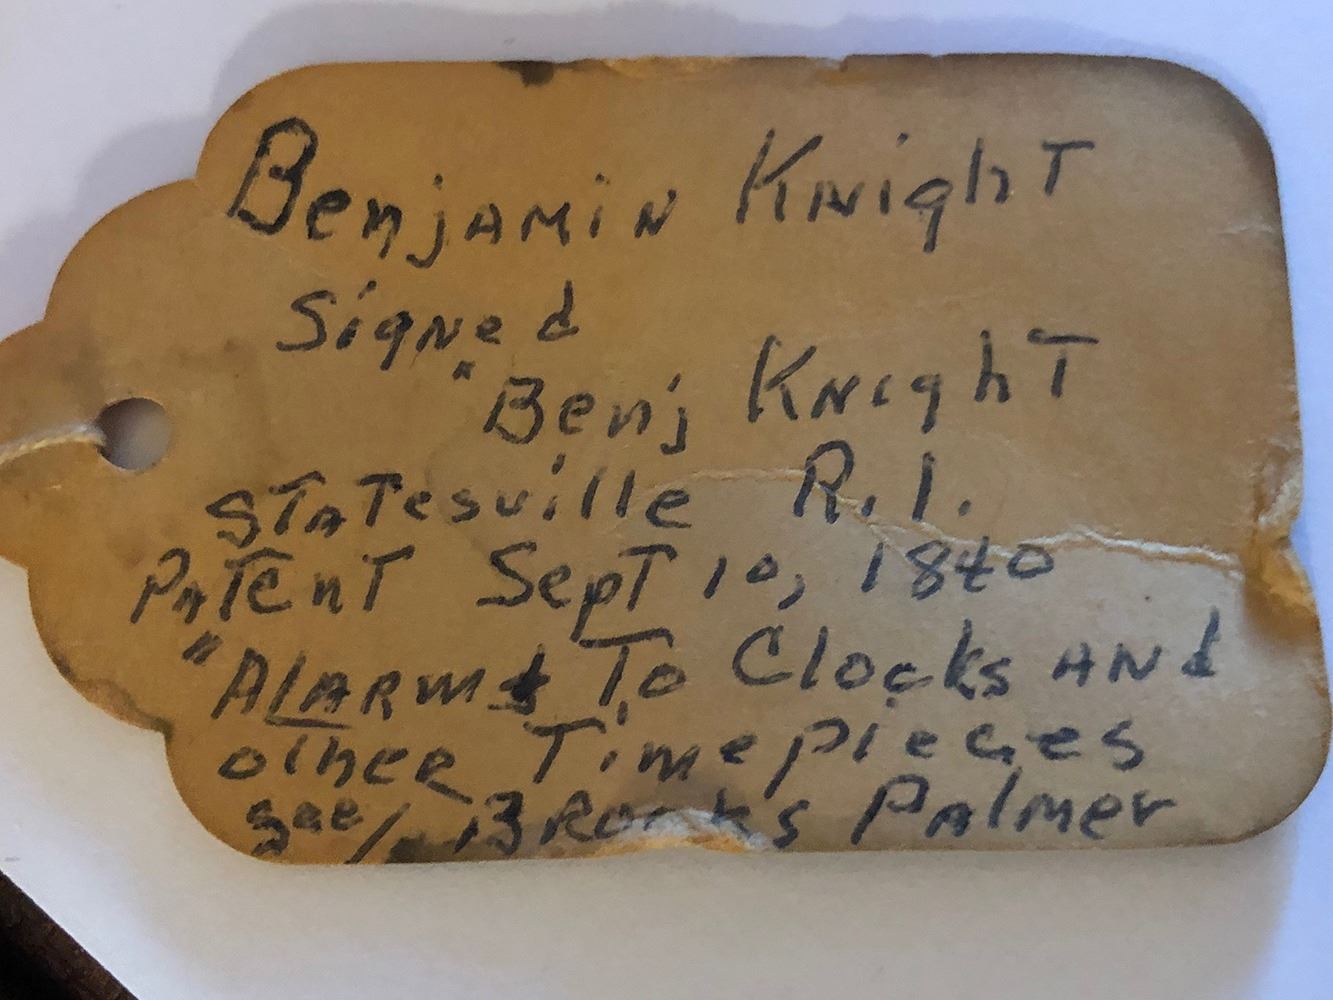 Benjamin Knight
Signed
"Benj Knight
Statesville R.I.
Patent Sept 10, 1840
"Alarms To Clocks and
other Timepieces
see Brooks Palmer